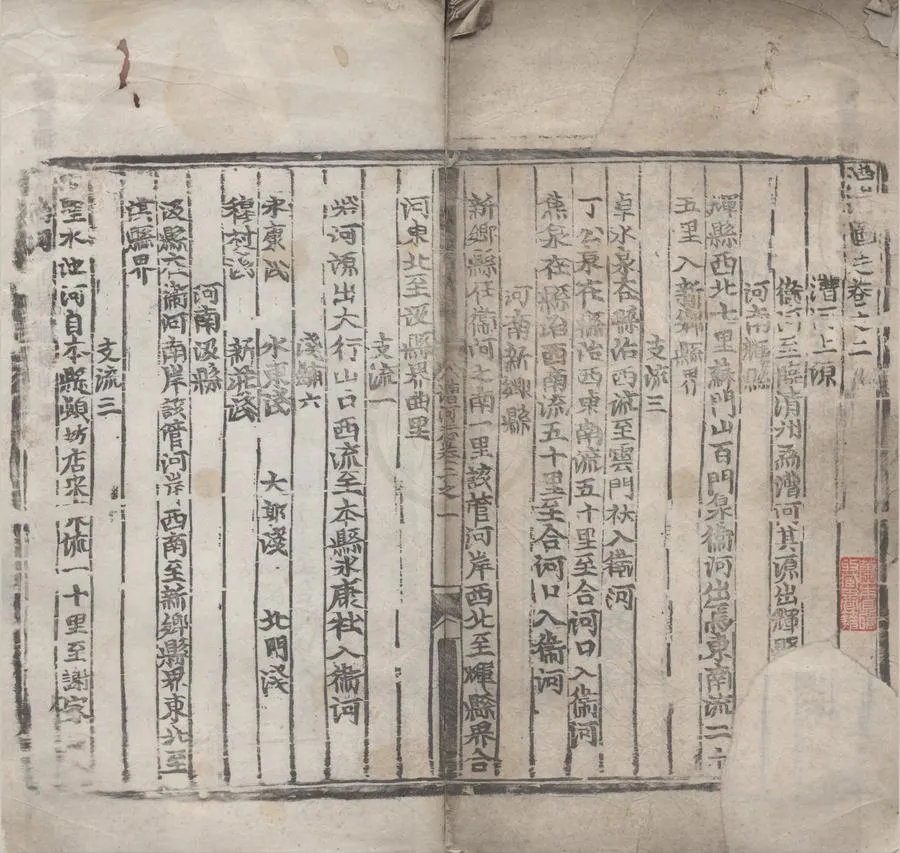 漕河圖志卷之二
漕河上源
衞河至臨清州為漕河其源出輝縣
河南輝縣
輝縣西北七里蘇門山百門泉衞河出焉東南流二十
五里入新鄉縣界
支流三
卓水泉在縣治西流至雲門社入衞河
丁公泉在縣治西東南流五十里至合河口入衞河
焦泉在縣治西南流五十里至合河口入衞河
河南新鄉縣
新鄉縣在衞河之南一里該管河岸西北至輝縣界合
河東北至汲縣界曲里
支流一
河源出太行山口西流至本縣永康社入衞河
淺鋪六
永康淺 水東淺 大郭淺 北門淺
村淺 新莊淺
河南汲縣
汲縣在衞河南岸該管河岸西南至新鄉縣界東北至
淇縣界
支流三
聖水池河自本縣頭坊店來 流一十里至謝家